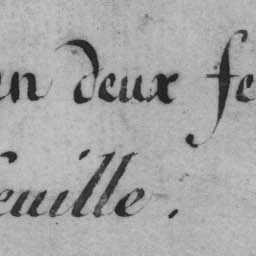 en deux fe
feuille.